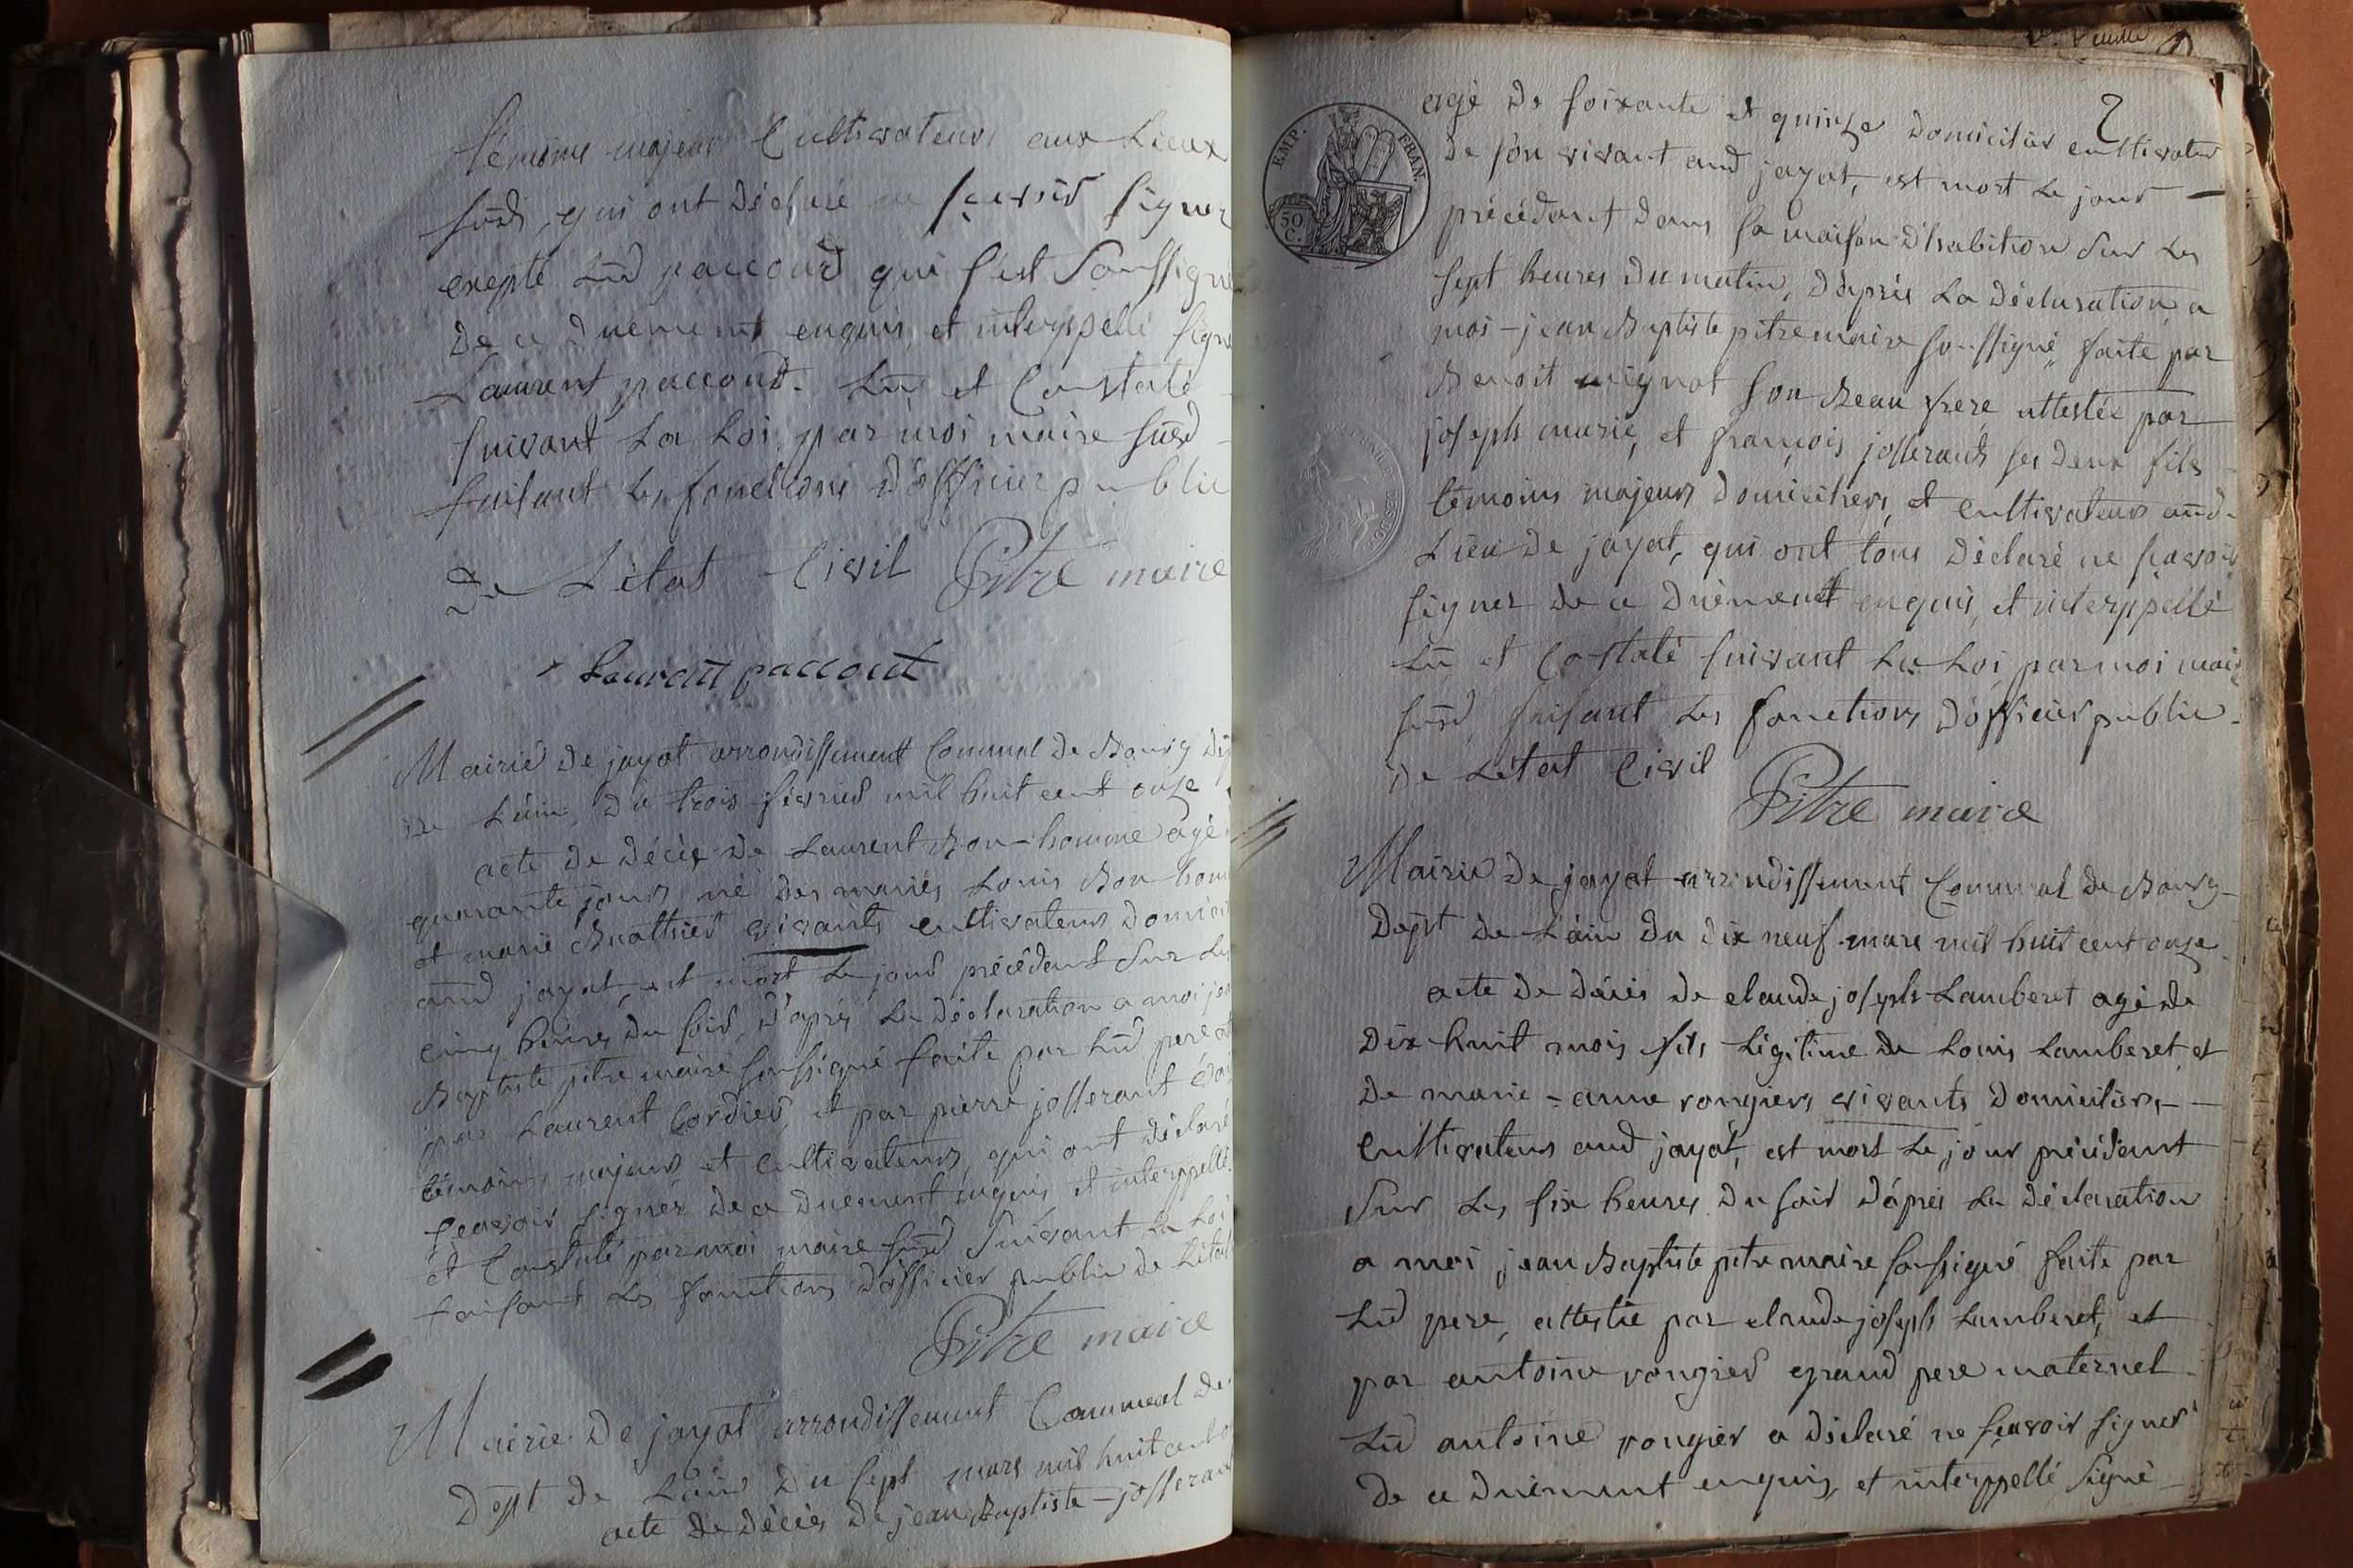 témoins majeurs Cultivateurs aux Lieux
susds, qui ont déclaré ne sçavoir signer
exepté Lud paccoud qui s'est Soussigné
de ce duement enquis, et interppellé signé
Laurent paccoud. Lu et Constaté
suivant La Loi, par moi maire susd
faisant Les fonctions d'officier public
de L'état Civil Pitre maire
Laurent paccout
Mairie de jayat arrondissement Commual de Bourg
de L'ain, du trois février mil huit cent onze
acte de décès de Laurent Bon-homme agé
quarante jours, né des mariés Louis Bon hom
et marie Buathier vivants cultivateurs domici
aud jayat, est mort Le jour précédent sur Les
cinq heures du soir, d'après La déclaration a moi je
Baptiste pitre maire soussigné faite par Lud pere
par Laurent Cordier, et par pierre josserant
témoins majeurs et cultivateurs, qui ont déclaré
sçavoir signer de ce duement enquis, et interppellé
et Constaté par moi maire susd suivant La Loi
faisant Les fonctions d'officier public de L'état
Pitre maire
Mairie de jayat arrondissement Commual de
Dépt de L'ain du sept mars mil huit cent
acte de décès de jean Baptiste-josseran
2
EMP. FRAN.
50 C.
agé de soixante et quinze domicilier cultivateur
de son vivant aud jayat, est mort Le jour
précédant dans sa maison d'habition sur Les
sept heures du matin, d'après La déclaration a
moi-jean Baptiste pitre maire soussigné, faite par
Benoit mignot son Beau frere, attestée par
joseph marie, et françois josserand ses deux fils
témoins majeurs domiciliers, et cultivateurs aud.
Lieu de jayat, qui ont tous déclaré ne sçavoir
signer de ce duement enquis, et interppellé
Lu et Costaté suivant La Loi par moi maire
susd faisant Les fonctions d'officier public.
de L'état Civil
Pitre maire
Mairie de jayat arrondissement Commual de Bourg
Dépt de L'ain du dix neuf mars mil huit cent onze
acte de décès de claude joseph Lamberet agé de
dix huit mois fils Légitime de Louis Lamberet et
de marie-anne rongiers vivants domiciliers,
cultivateurs aud jayat, est mort Le jour précédant
sur Les six heures du soir d'après La déclaration
a moi jean Baptiste pitre maire soussigné faite par
Lud pere, attestée par claude joseph Lamberet, et
par antoine rongier grand pere maternel
Lud antoine rongier a déclaré ne sçavoir signer
de ce duement enquis, et interppellé signé